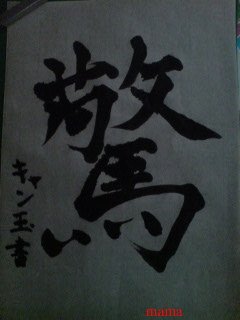 驚
キャン玉書
mama